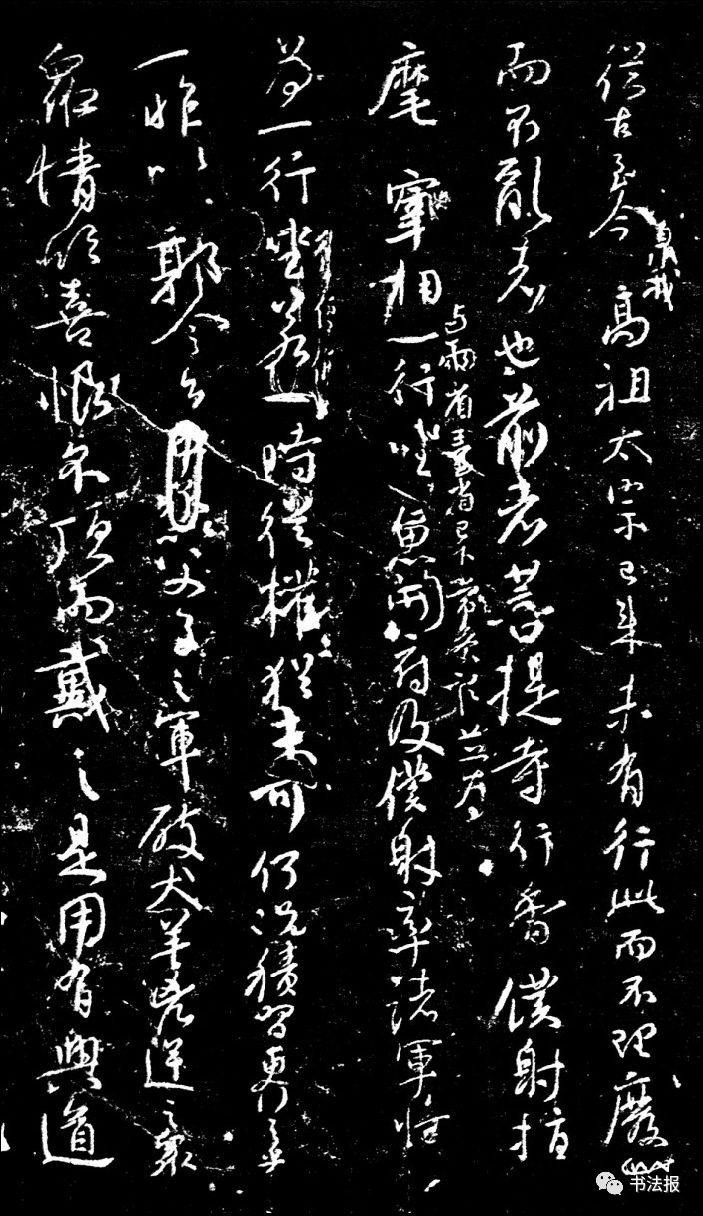 從古至今暨我高祖太宗已來未有行此而不理廢
而不亂者也前者菩提寺行香僕射指
麾宰相與兩省臺省已下常參官並為一行坐魚開府及僕射率諸軍將
為一行坐若一時從權猶未可何況積習更行之乎
一昨以郭令公父子之軍破犬羊兇逆之眾
眾情欣喜恨不頂而戴之是用有興道
书法报